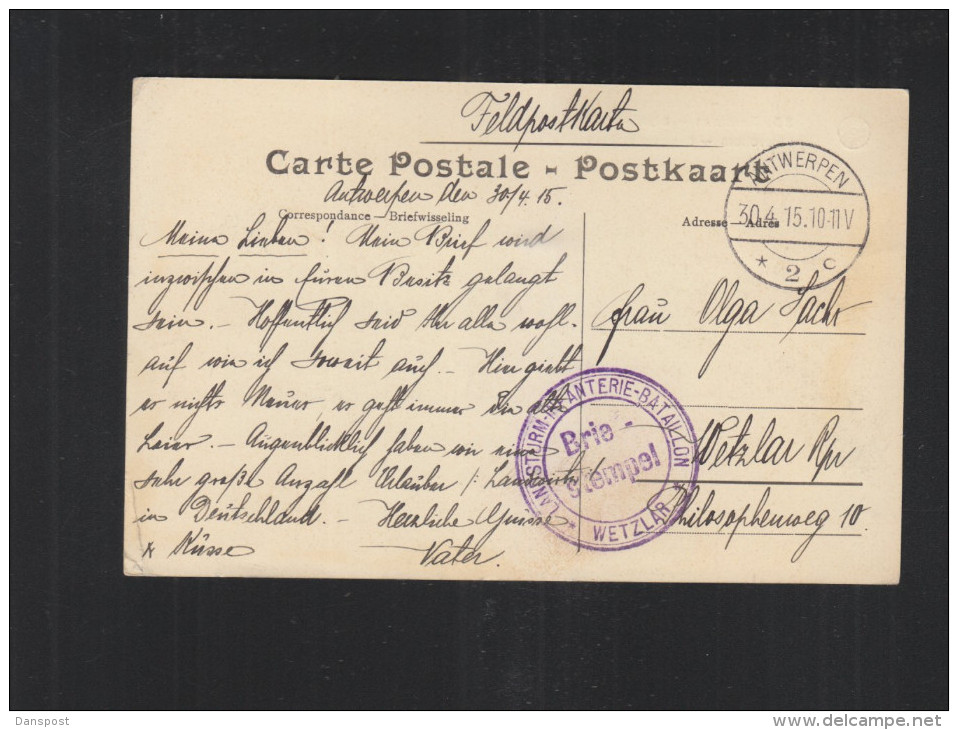 Feldpostkarte
Carte Postale - Postkaart
Antwerpen den 30/4. 15.
Correspondance — Briefwisseling
Adresse — Adres
ANTWERPEN
30.4.15.10-11V
* 2 c
Meine Lieben! Mein Brief wird
inzwischen in Euren Besitz gelangt
sein. - Hoffentlich seid Ihr alle wohl-
auf wie ich soweit auch. - Hier giebt
es nichts Neues, es geht immer die alte
Leier. - Augenblicklich haben wir eine
sehr große Anzahl Urlauber /: Landwirte
in Deutschland. - Herzliche Grüsse
& Küsse
Vater.
Frau Olga Sachs
Wetzlar
Philosophenweg 10.
LANDSTURM-INFANTERIE-BATAILLON
Brief-
stempel
* WETZLAR *
Danspost
www.delcampe.net